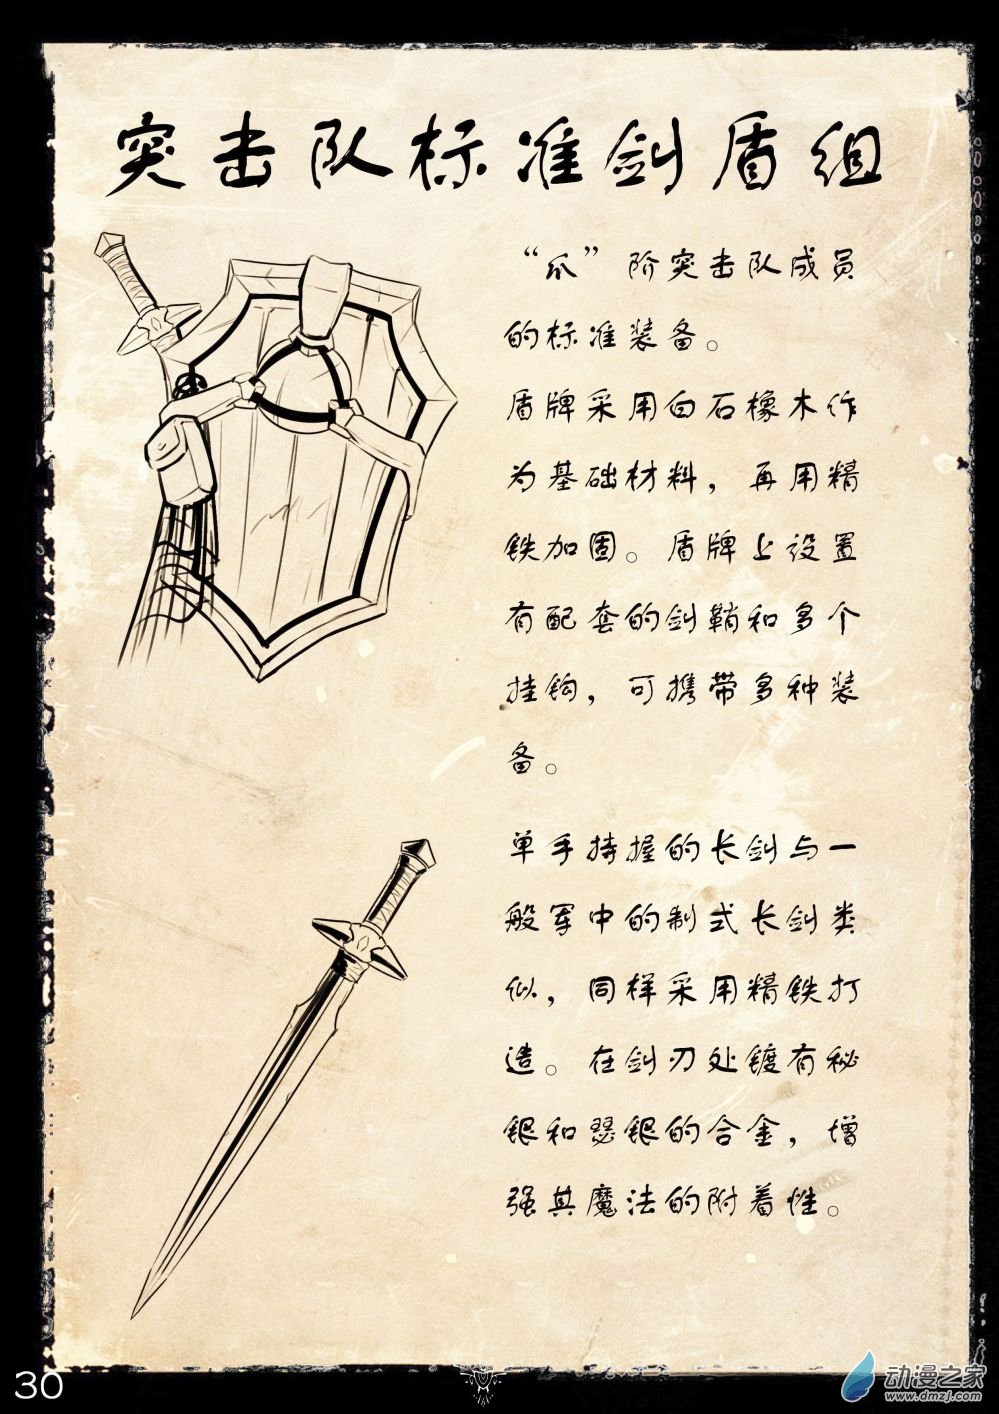 突击队标准剑盾组
“爪”阶突击队成员
的标准装备。
盾牌采用白石橡木作
为基础材料，再用精
铁加固。盾牌上设置
有配套的剑鞘和多个
挂钩，可携带多种装
备。
单手持握的长剑与一
般军中的制式长剑类
似，同样采用精铁打
造。在剑刃处镀有秘
银和瑟银的合金，增
强其魔法的附着性。
30
动漫之家
www.dmzj.com